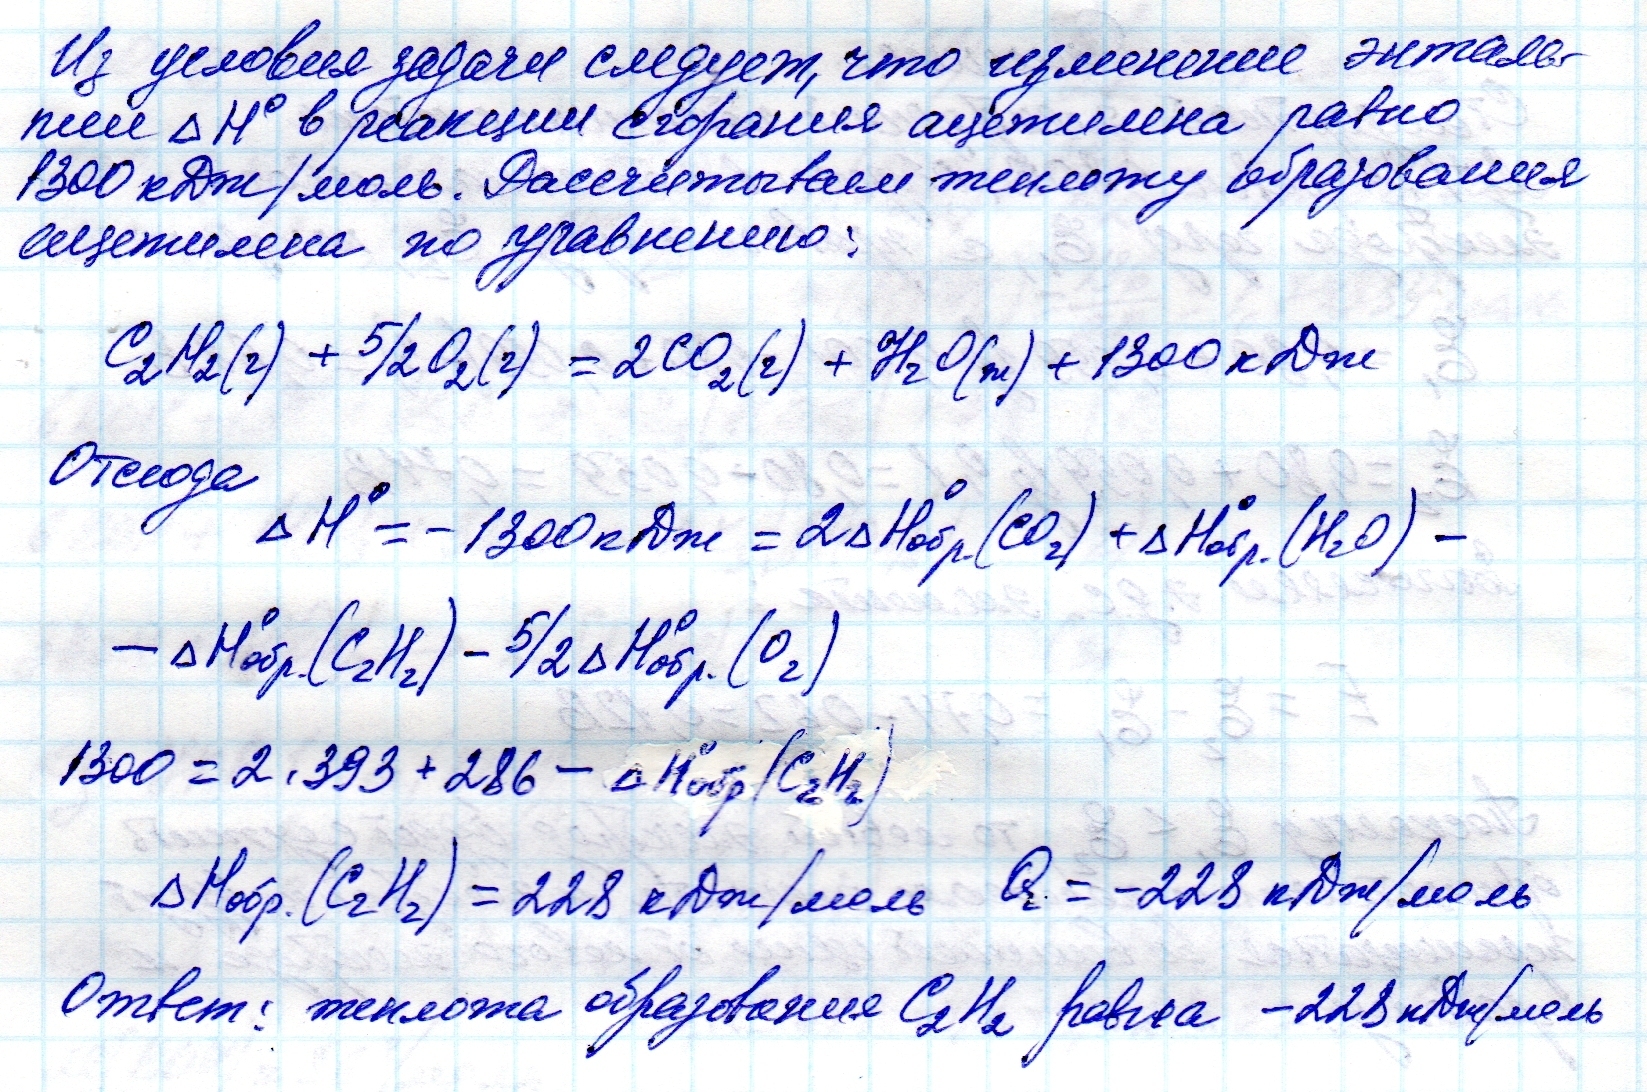 Из условия задачи следует, что изменение энталь-
пии ΔH° в реакции сгорания ацетилена равно
1300 кДж/моль. Рассчитываем теплоту образования
ацетилена по уравнению:
C₂H₂(г) + 5/2O₂(г) = 2CO₂(г) + H₂O(ж) + 1300 кДж
Отсюда
ΔH° = - 1300 кДж = 2ΔH°обр.(CO₂) + ΔH°обр.(H₂O) -
- ΔH°обр.(C₂H₂) - 5/2ΔH°обр.(O₂)
1300 = 2·393 + 286 - ΔH°обр(C₂H₂)
ΔHобр.(C₂H₂) = 228 кДж/моль Q = -228 кДж/моль
Ответ: теплота образования C₂H₂ равна -228 кДж/моль